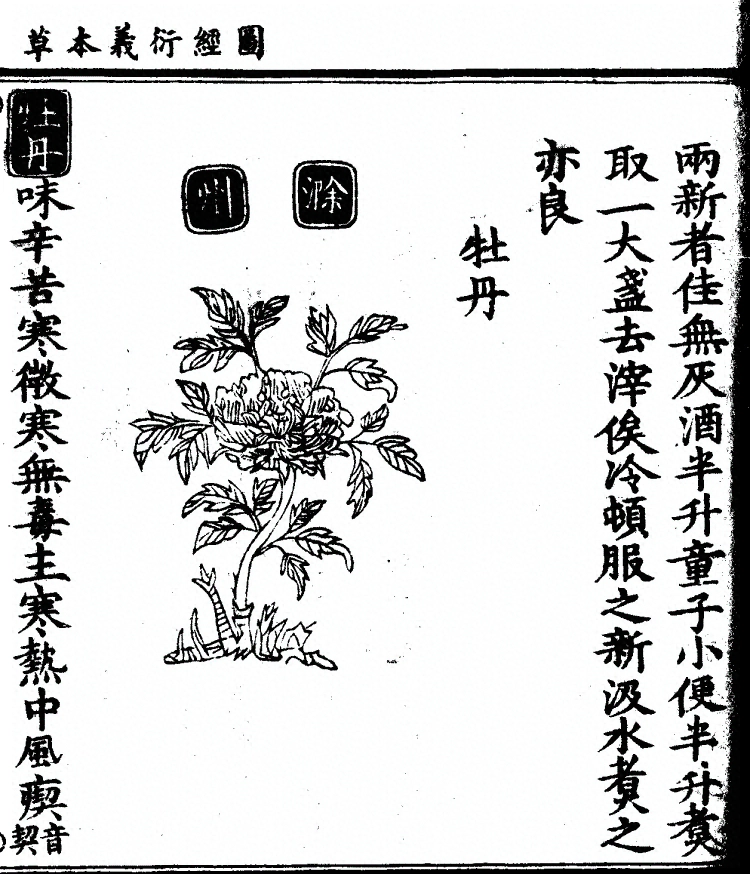 圖經衍義本草
兩新者佳無灰酒半升童子小便半升煮
取一大盞去滓俟冷頓服之新汲水煮之
亦良
牡丹
滁州
牡丹味辛苦寒微寒無毒主寒熱中風瘈音契